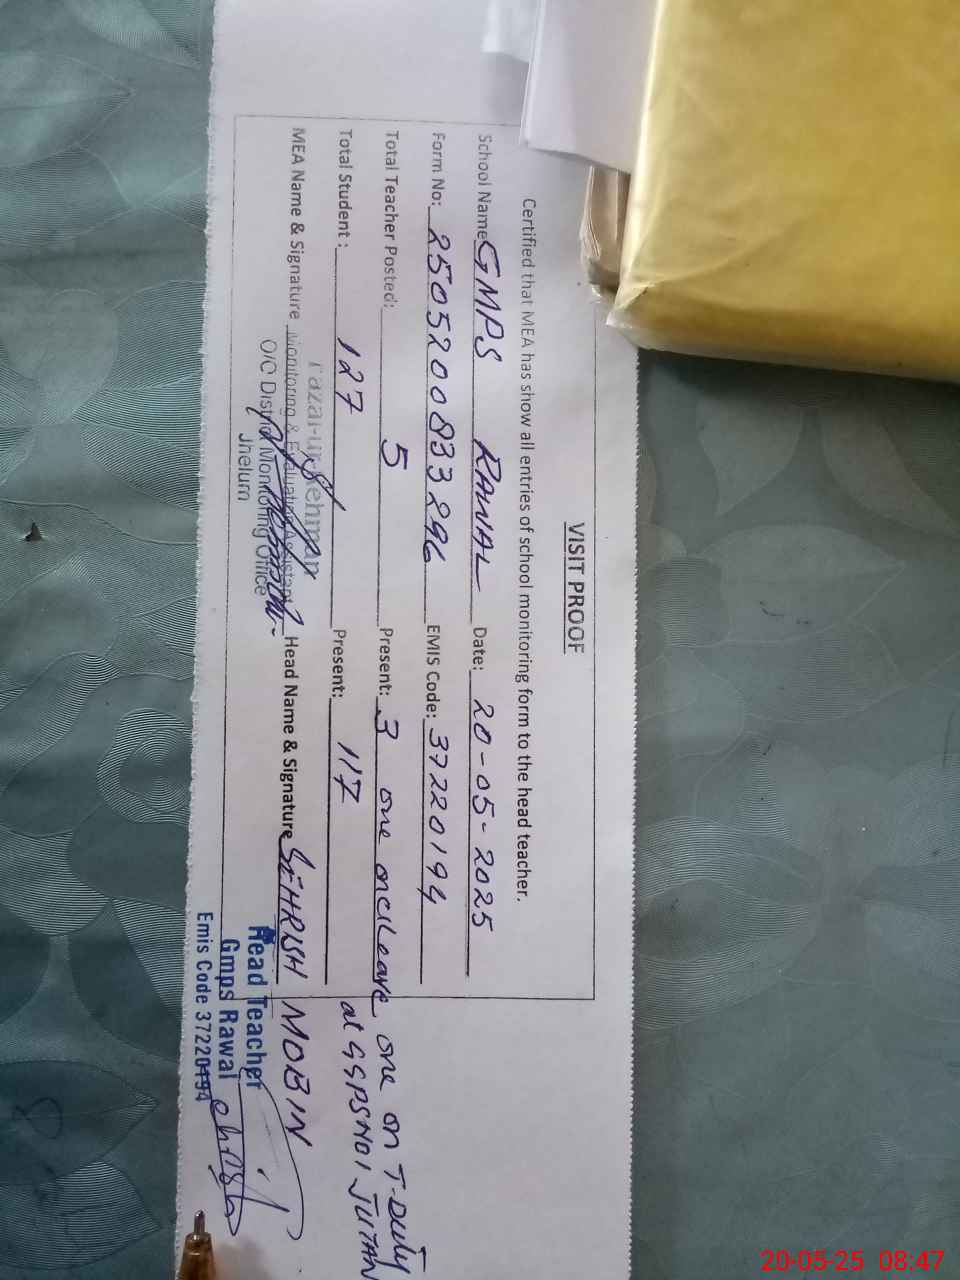 VISIT PROOF
Certified that MEA has show all entries of school monitoring form to the head teacher.
School Name GMPS RAWAL Date: 20-05-2025
Form No: 2505200833296 EMIS Code: 37220194
Total Teacher Posted: 5 Present: 3 one on cLeave one on T-Duty
at GGPS NO1 JUTANA
Total Student : 127 Present: 117
Fazal-ur-Rehman
MEA Name & Signature Monitoring & Evaluation Assistant Head Name & Signature SEHRISH MOBIN
O/C District Monitoring Office
Jhelum
Head Teacher
Gmps Rawal
Emis Code 37220194
20-05-25 08:47